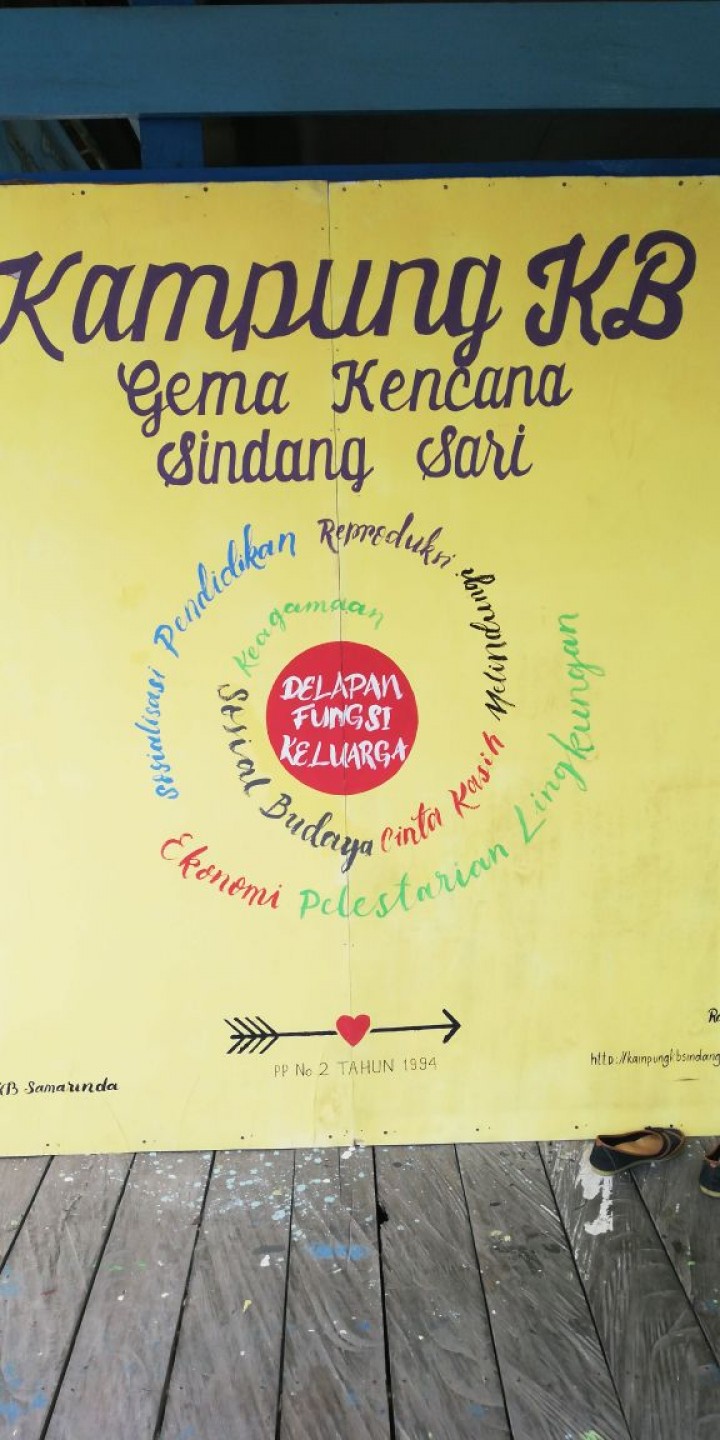 Kampung KB
Gema Kencana
Sindang Sari
Keagamaan
Sosial Budaya
Cinta Kasih
Melindungi
Reproduksi
Sosialisasi Pendidikan
Ekonomi
Pelestarian Lingkungan
DELAPAN
FUNGSI
KELUARGA
PP No 2 TAHUN 1994
KB Samarinda
http://kampungkbsindang